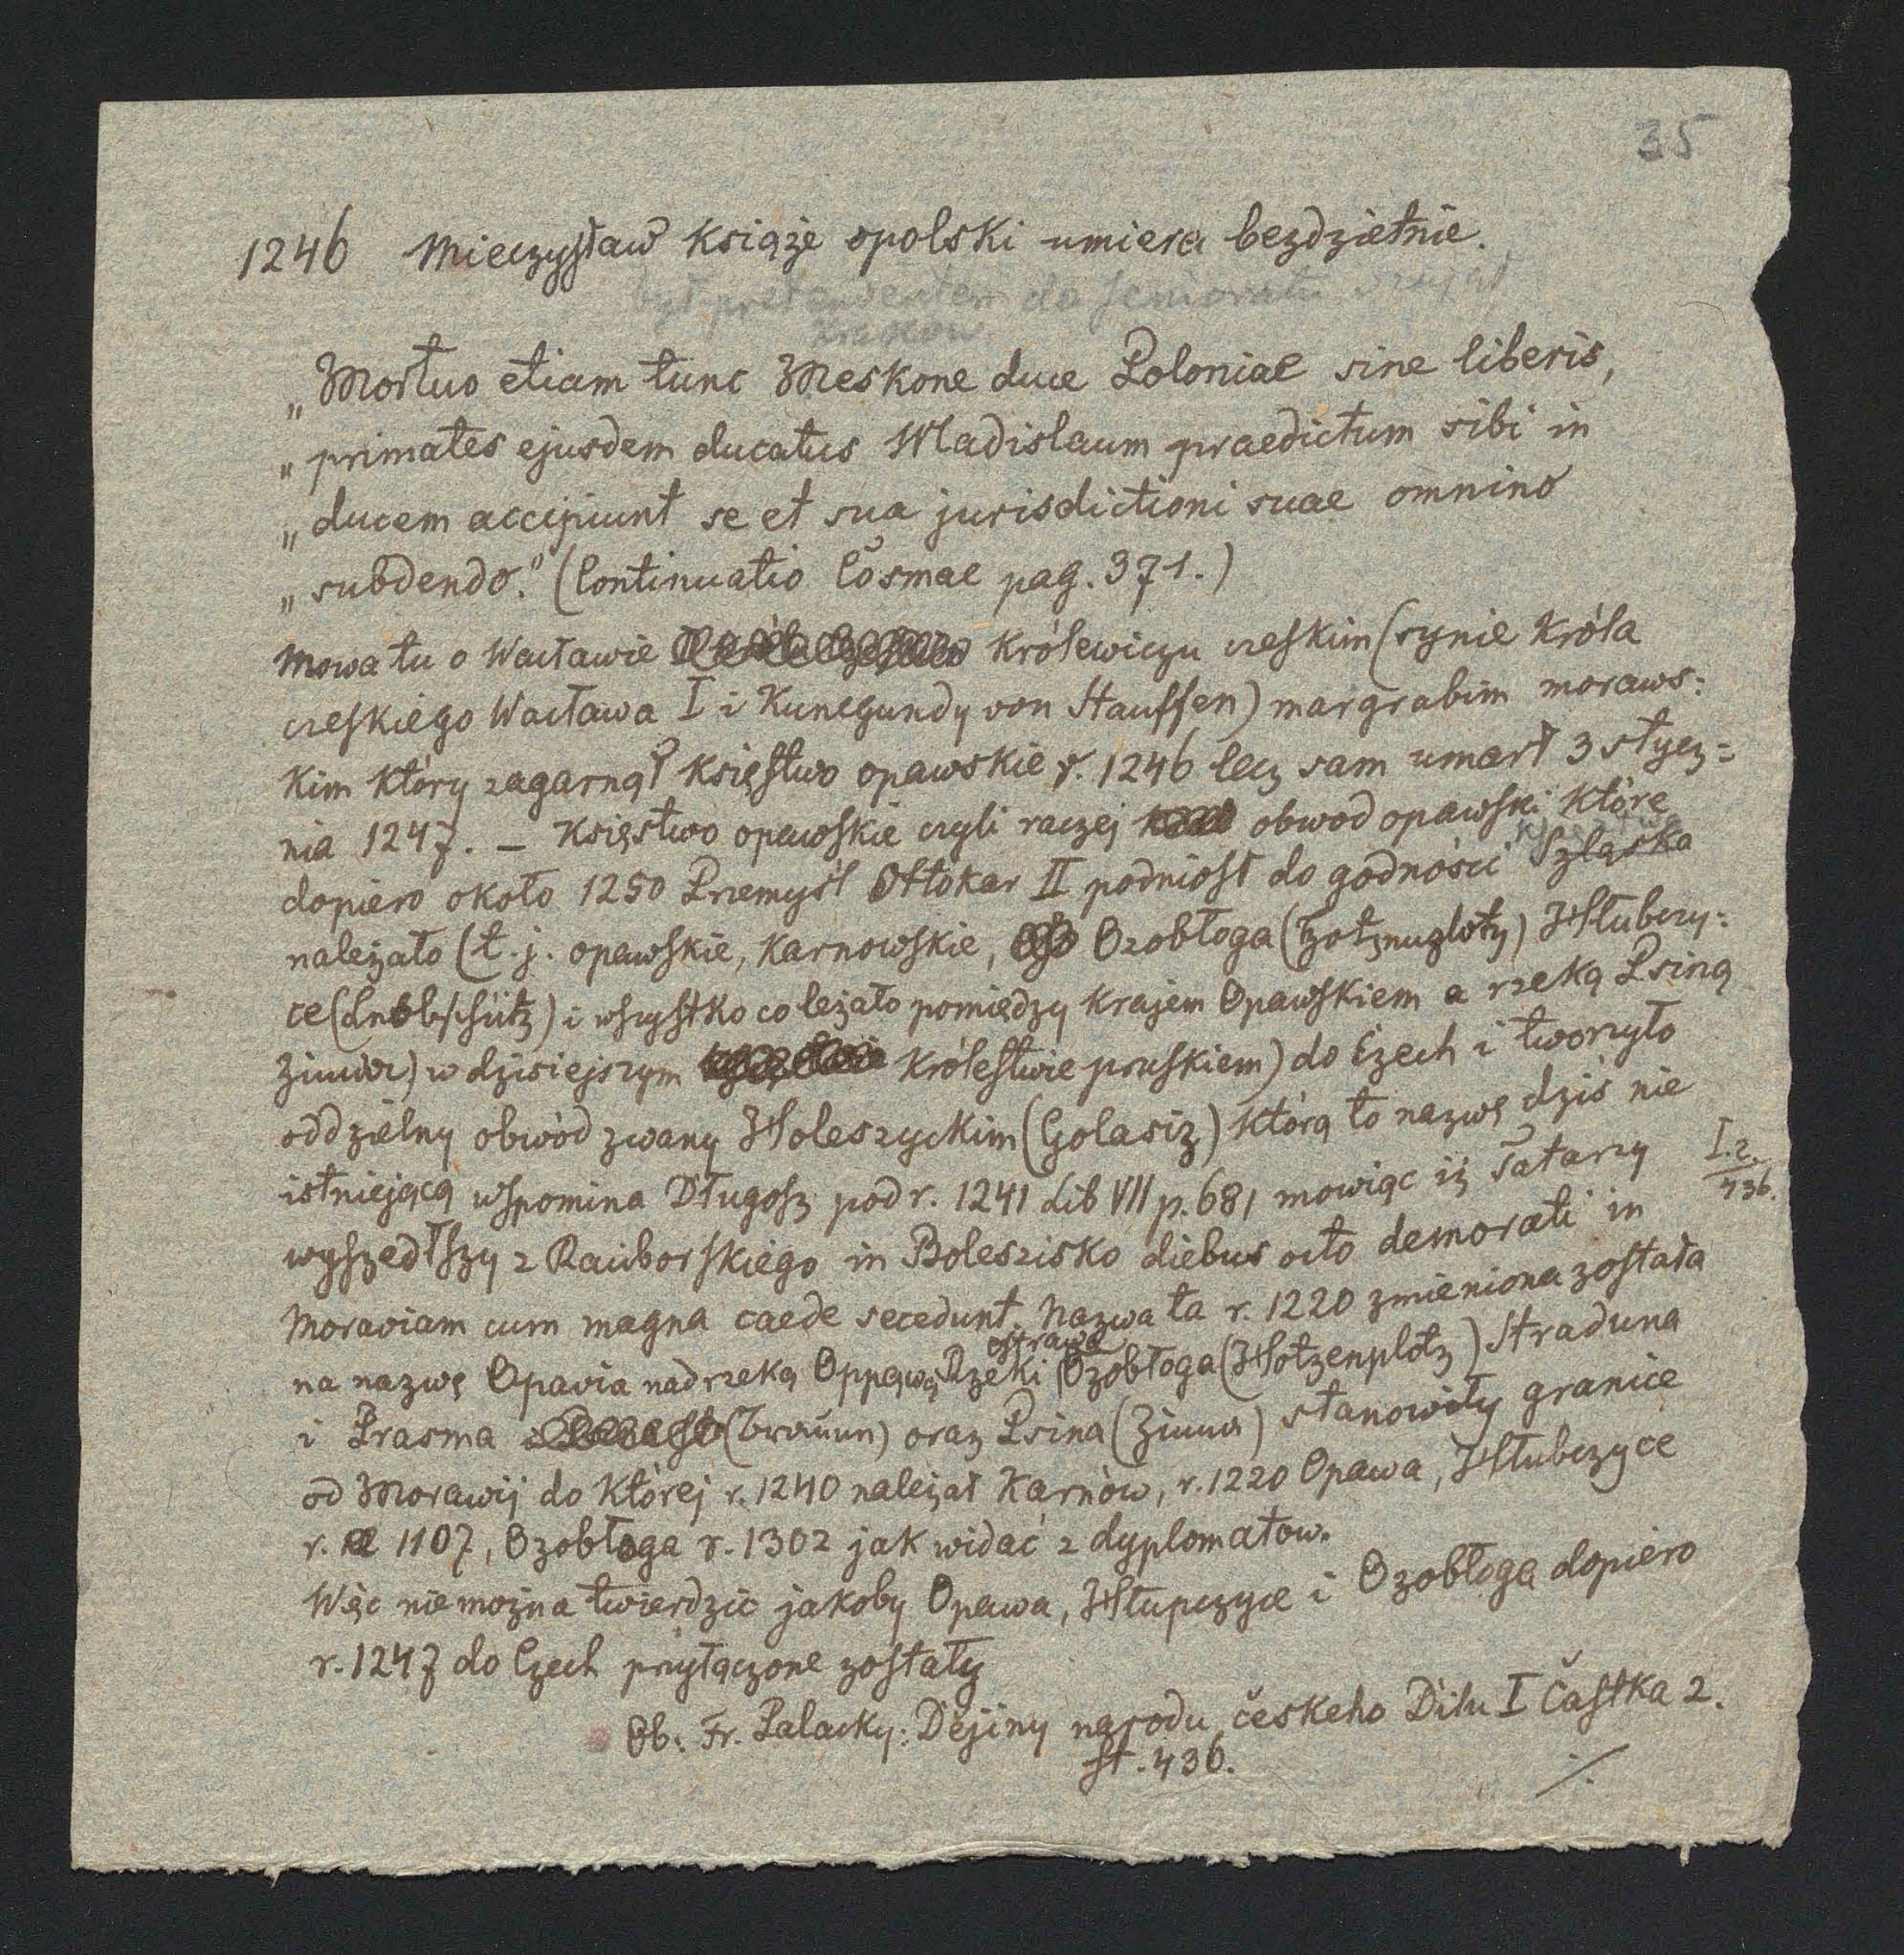 35
1246 Mieczysław książe opolski umiera bezdzietnie.
był pretendentem do senioratu
Kraków
„Mortuo etiam tunc Meskone duce Poloniae sine liberis,
„primates ejusdem ducatus Wladislaum praedictum sibi in
„ducem accipiunt se et sua jurisdictioni suae omnino
„subdendo." (Continuatio Cosmae pag. 371.)
Mowa tu o Wacławie królewiczu czeskim (synie króla
czeskiego Wacława I i Kunegundy von Stauffen) margrabim moraws:
kim który zagarnął księstwo opawskie r. 1246 lecz sam umarł 3 stycz=
nia 1247. – Księstwo opawskie czyli raczej obwod opawski które
dopiero około 1250 Przemyśl Ottokar II podniosł do godności Szląska
księstwa
należało (t. j. opawskie, karnowskie, Ozobłoga (Hotznuzlotz) Hłubczy:
ce (Leobschütz) i wszystko co leżało pomiędzy krajem Opawskiem a rzeką Psiną
Zinna) w dzisiejszym królestwie pruskiem) do Czech i tworzyło
oddzielny obwód zwany Holeszyckim (Golasiz) którą to nazwę dziś nie
istniejącą wspomina Długosz pod r. 1241 Lib VII p. 681 mowiąc iż Tatarzy
I. 2.
436.
wyszedłszy z Raciborskiego in Boleszisko diebus octo demorati in
Moraviam cum magna caede secedunt. Nazwa ta r. 1220 zmieniona została
na nazwę Opavia nad rzeką Oppawą Rzeki Ozobłoga (Hotzenplotz) Straduna
ostrawa
i Prasma (Braun) oraz Psina (Zinna) stanowiły granice
od Morawij do której r. 1240 należał Karnów, r. 1220 Opawa, Hłubczyce
r. 1107, Ozobłoga r. 1302 jak widać z dyplomatow.
Więc nie można twierdzić jakoby Opawa, Hłupczyce i Ozobłoga dopiero
r. 1247 do Czech przyłączone zostały
Ob: Fr. Palacky: Dějiny narodu českeho Dilu I Častka 2.
st. 436.
./.